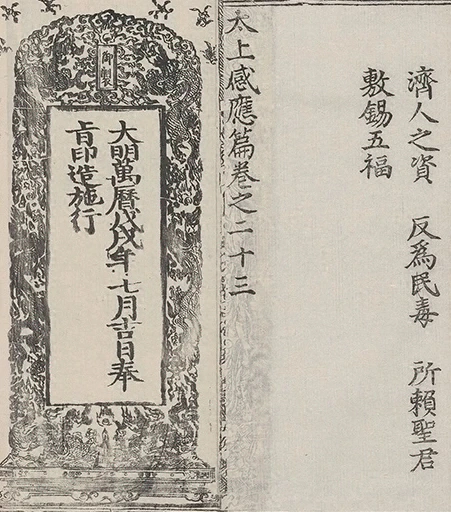 濟人之資 反爲民毒 所賴聖君
敷錫五福
太上感應篇卷之二十三
御製
大明萬曆戊戌年七月吉日奉
旨印造施行